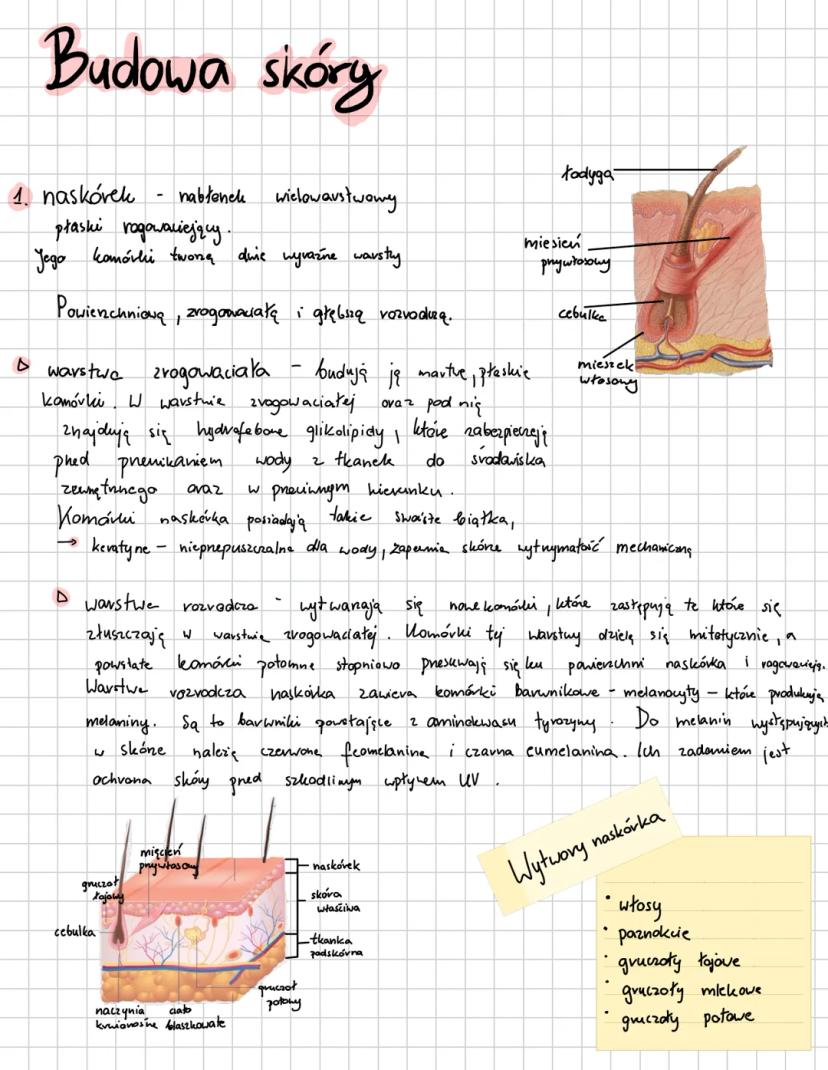 Budowa skóry
1. naskórek - nabłonek wielowarstwowy
płaski rogowaciejący.
Jego komórki tworzą dwie wyraźne warstwy
Powierzchniową, zrogowaciałą i głębszą rozrodczą.
warstwa zrogowaciała - budują ją martwe, płaskie
komórki. W warstwie zrogowaciałej oraz pod nią
znajdują się hydrofobowe glikolipidy, które zabezpieczają
przed przenikaniem wody z tkanek do środowiska
zewnętrznego oraz w przeciwnym kierunku.
Komórki naskórka posiadają takie swoiste białka,
→ keratynę - nieprzepuszczalna dla wody, zapewnia skórze wytrzymałość mechaniczną
warstwa rozrodcza - wytwarzają się nowe komórki, które zastępują te które się
złuszczają w warstwie zrogowaciałej. Komórki tej warstwy dzielą się mitotycznie, a
powstałe komórki potomne stopniowo przesuwają się ku powierzchni naskórka i rogowacieją.
Warstwa rozrodcza naskórka zawiera komórki barwnikowe - melanocyty - które produkują
melaniny. Są to barwniki powstające z aminokwasu tyrozyny. Do melanin występujących
w skórze należą czerwona feomelanina i czarna eumelanina. Ich zadaniem jest
ochrona skóry przed szkodliwym wpływem UV.
łodyga
miesień
przywłosowy
cebulka
mieszek
włosowy
mięcień
przywłosowy
gruczoł
łojowy
cebulka
naczynia
krwionośne
ciało
blaszkowate
gruczoł
potowy
naskórek
skóra
właściwa
tkanka
podskórna
Wytwory naskórka
• włosy
• paznokcie
• gruczoły łojowe
• gruczoły mlekowe
• gruczoły potowe